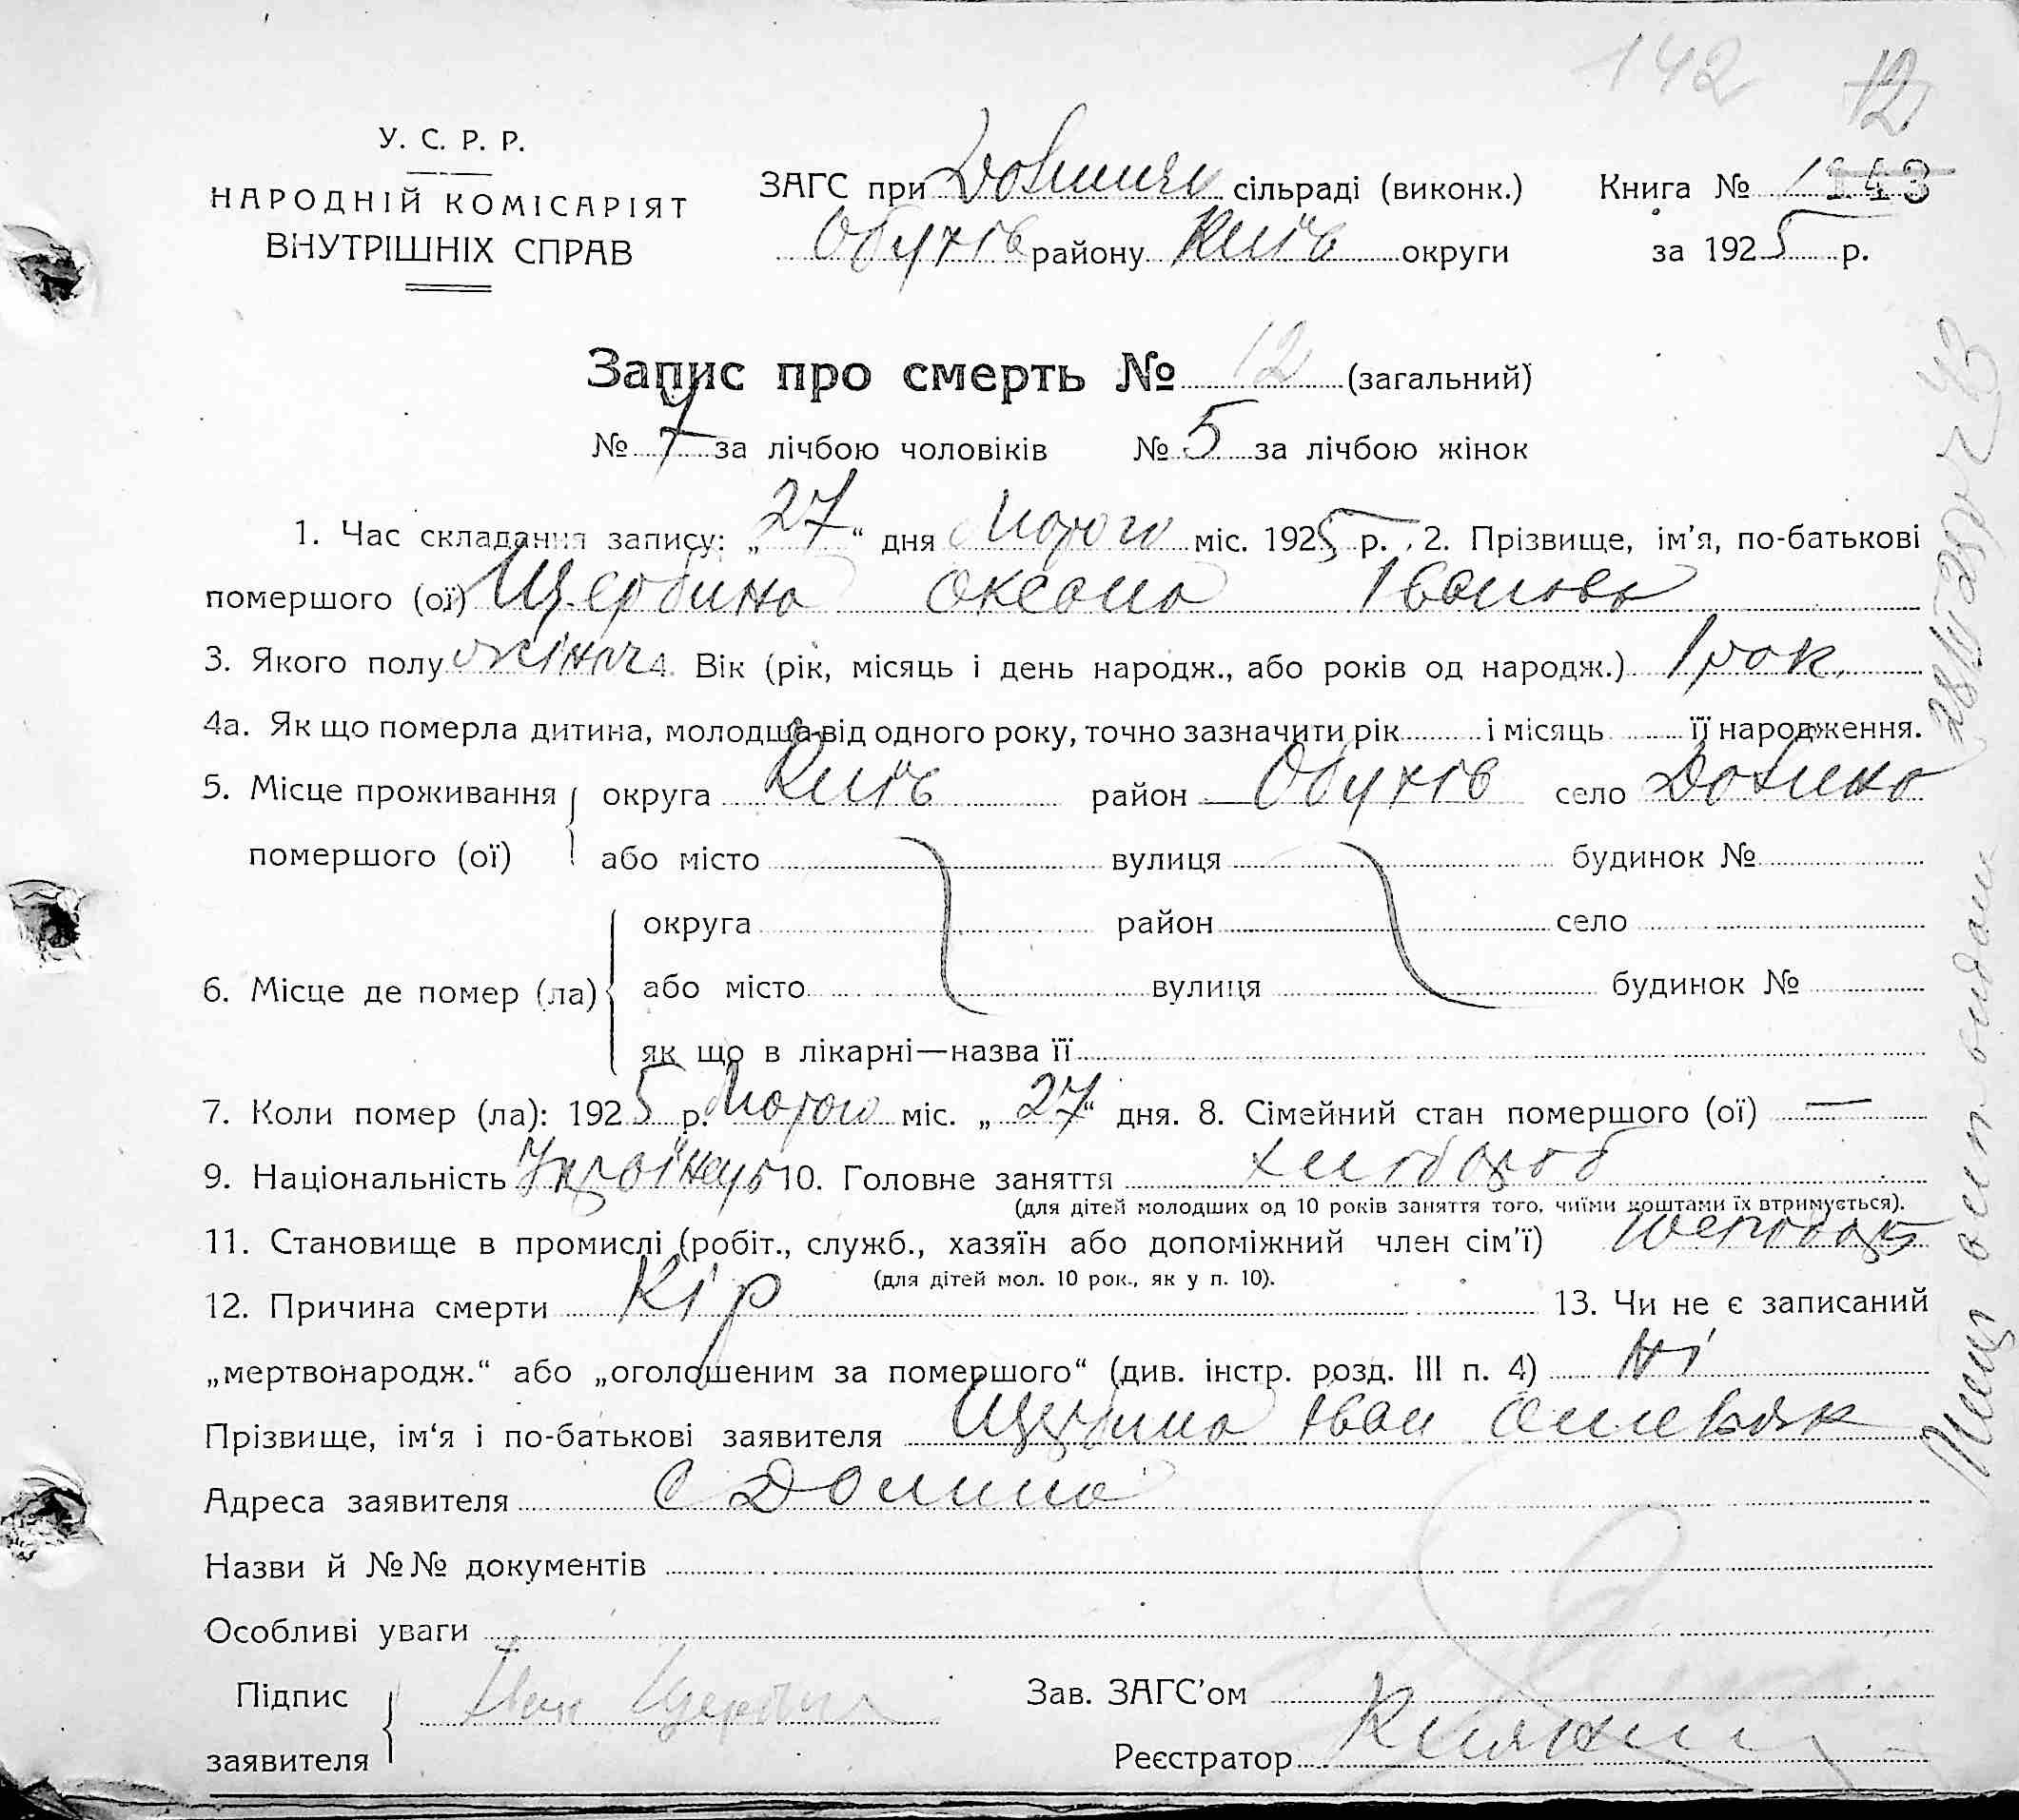 142 12
У. С. Р. Р.
НАРОДНІЙ КОМІСАРІЯТ
ВНУТРІШНІХ СПРАВ
ЗАГС при сільраді (виконк.) Книга № 1 143
Обухів району Київ округи за 1925 р.
Запис про смерть № 12 (загальний)
№ 7 за лічбою чоловіків № 5 за лічбою жінок
1. Час складання запису: „27“ дня Лютого міс. 1925 р. 2. Прізвище, ім’я, по-батькові
помершого (ої) Щербина Оксана Іванова
3. Якого полу жіноч 4. Вік (рік, місяць і день народж., або років од народж.) 1 рок.
4а. Як що померла дитина, молодша від одного року, точно зазначити рік і місяць її народження.
5. Місце проживання округа Київ район Обухів село Долина
помершого (ої) або місто вулиця будинок №
округа район село
6. Місце де помер (ла) або місто вулиця будинок №
як що в лікарні—назва її
7. Коли помер (ла): 1925 р. Лютого міс. „27“ дня. 8. Сімейний стан помершого (ої) —
9. Національність 10. Головне заняття хлібороб
(для дітей молодших од 10 років заняття того, чиїми коштами їх втримується).
11. Становище в промислі (робіт., служб., хазяїн або допоміжний член сім’ї)
(для дітей мол. 10 рок., як у п. 10).
12. Причина смерти Кір 13. Чи не є записаний
„мертвонародж.“ або „оголошеним за помершого“ (див. інстр. розд. III п. 4) Ні
Прізвище, ім‘я і по-батькові заявителя Щербина Іван
Адреса заявителя С Долина
Назви й №№ документів
Особливі уваги
Підпис Іван Щербина Зав. ЗАГС’ом
заявителя Реєстратор